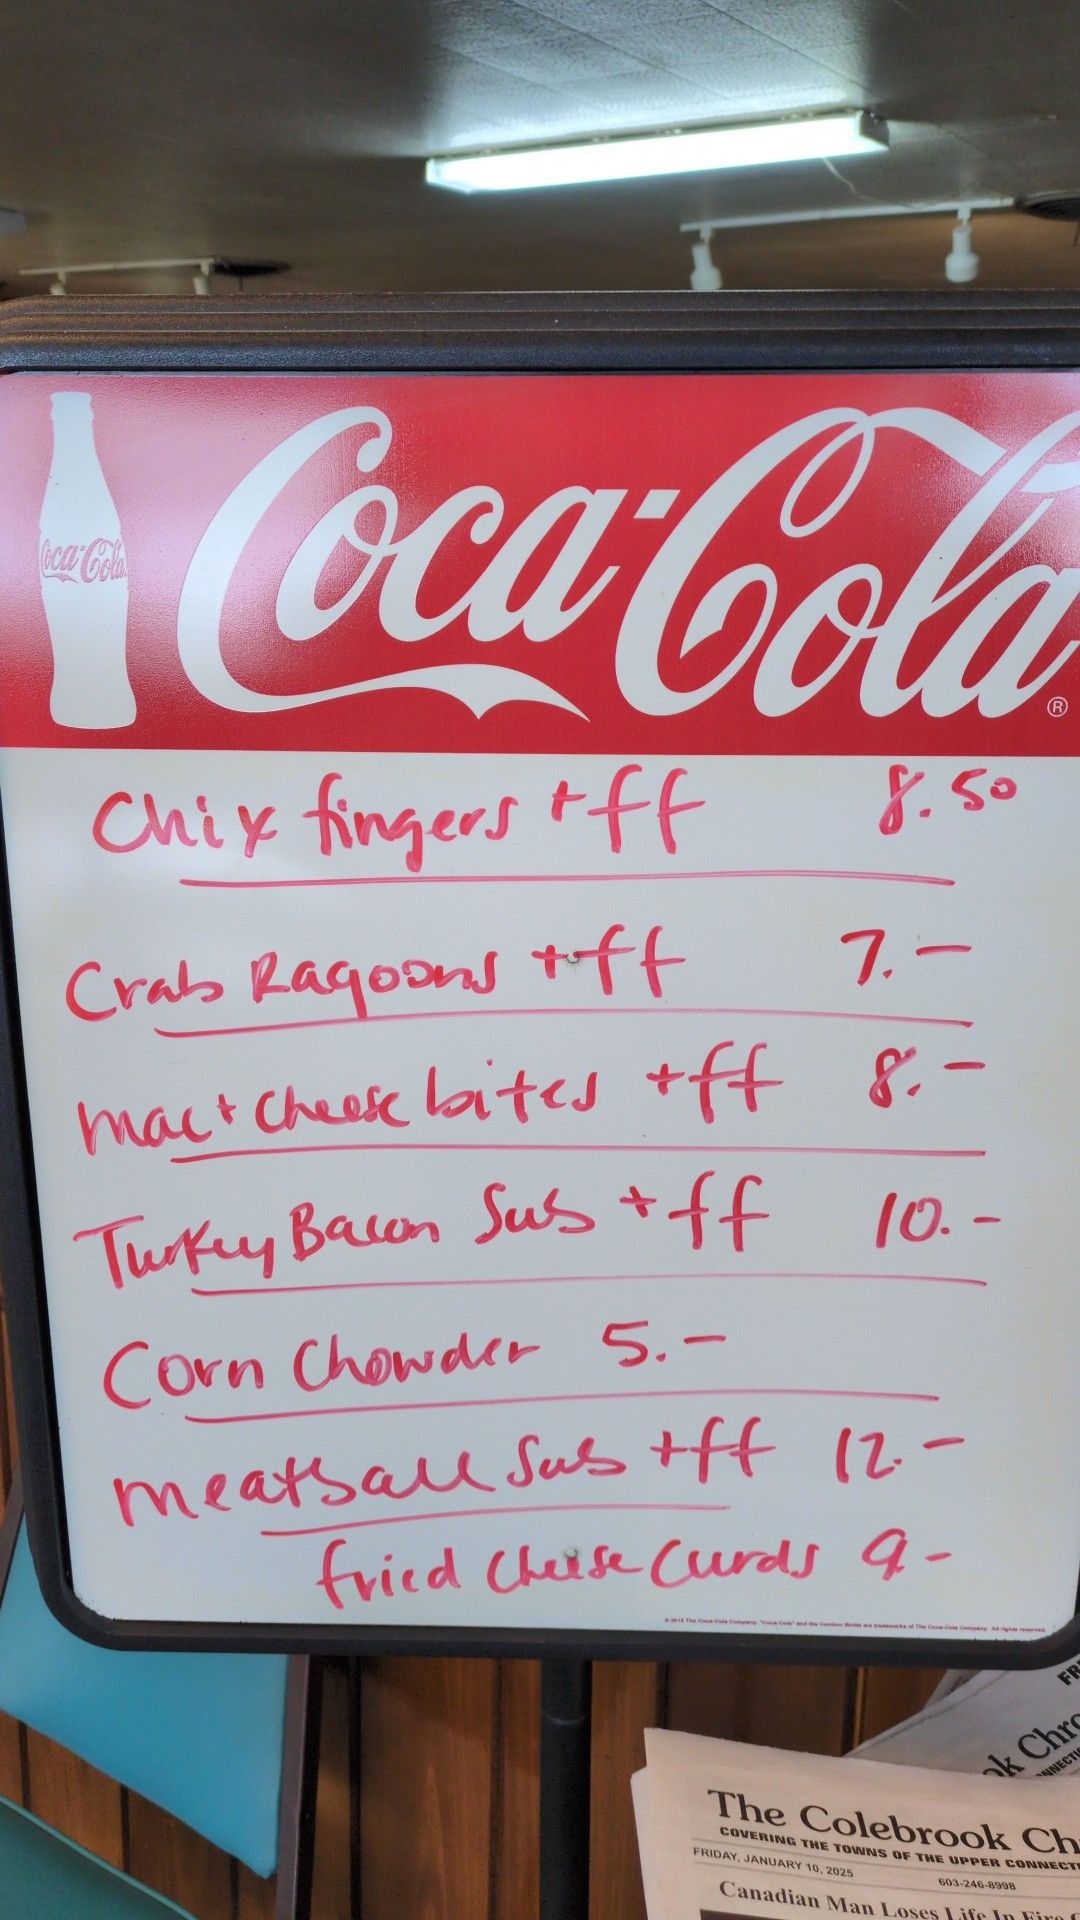 Coca-Cola
Coca-Cola ®
Chix fingers + ff 8.50
Crab Ragoons + ff 7.-
mac + cheese bites + ff 8.-
Turkey Bacon Sub + ff 10.-
Corn Chowder 5.-
meatball Sub + ff 12.-
fried cheese curds 9-
© 2013 The Coca-Cola Company. "Coca-Cola" and the Contour Bottle are trademarks of The Coca-Cola Company. All rights reserved.
The Colebrook Ch
COVERING THE TOWNS OF THE UPPER CONNECT
FRIDAY, JANUARY 10, 2025
603-246-8998
Canadian Man Loses Life In Fire
FR
ok Chro
NNECTI